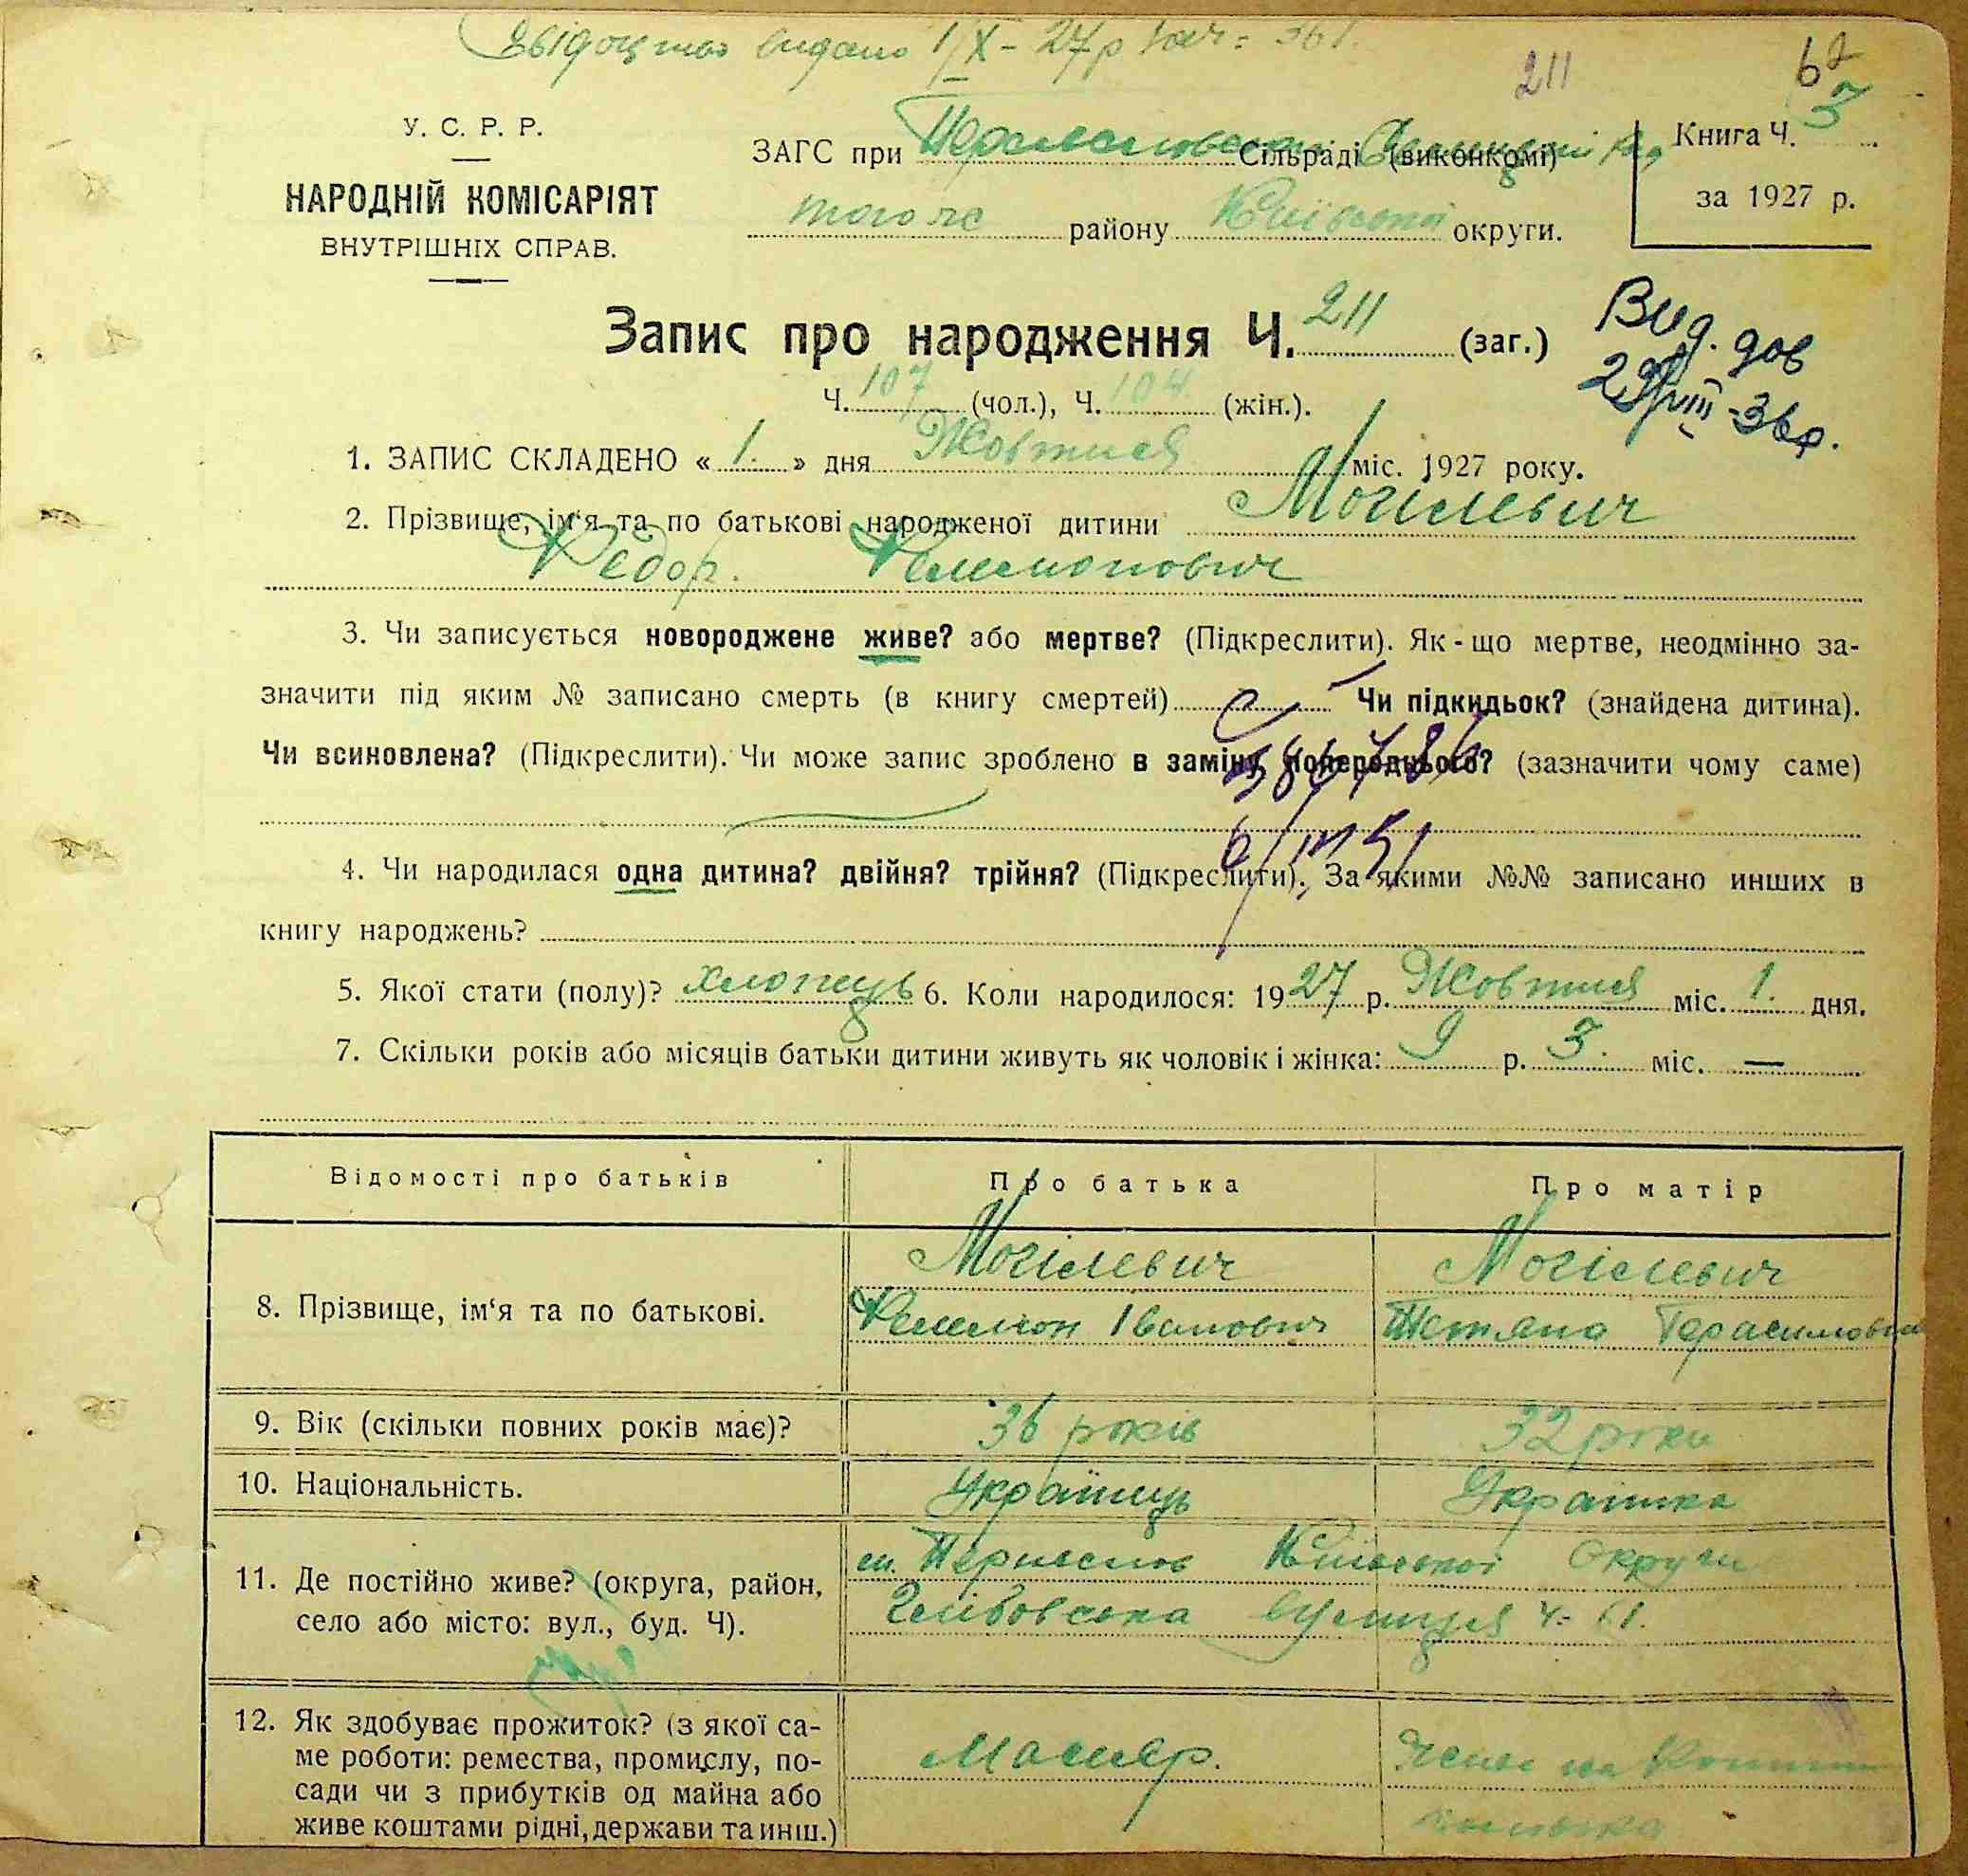 Свідоцтво видано 1/X - 27р
211
62
У. С. Р. Р.
НАРОДНІЙ КОМІСАРІЯТ
ВНУТРІШНІХ СПРАВ.
ЗАГС при Сільраді (виконкомі)
того ж району Київської округи.
Книга Ч. 3
за 1927 р.
Запис про народження Ч. 211 (заг.)
Ч. 107 (чол.), Ч. 104 (жін.).
Вид. дов
29/VIII - 36р.
1. ЗАПИС СКЛАДЕНО « 1. » дня Жовтня міс. 1927 року.
2. Прізвище, ім'я та по батькові народженої дитини Могілевич
Федор. Фелемонович
3. Чи записується новороджене живе? або мертве? (Підкреслити). Як-що мертве, неодмінно за-
значити під яким № записано смерть (в книгу смертей) Чи підкидьок? (знайдена дитина).
Чи всиновлена? (Підкреслити). Чи може запис зроблено в заміну попереднього? (зазначити чому саме)
4. Чи народилася одна дитина? двійня? трійня? (Підкреслити). За якими №№ записано инших в
книгу народжень?
5. Якої стати (полу)? хлопець 6. Коли народилося: 1927 р. Жовтня міс. 1. дня.
7. Скільки років або місяців батьки дитини живуть як чоловік і жінка: 9 р. 3. міс. —
Відомості про батьків Про батька Про матір
8. Прізвище, ім'я та по батькові. Могілевич Могілевич
Фелемон Іванович Тетяна Герасимовна
9. Вік (скільки повних років має)? 36 років 32 роки
10. Національність. Українець Українка
11. Де постійно живе? (округа, район, м. Переслов Київської Округи
село або місто: вул., буд. Ч). вулиця ч. 61.
12. Як здобуває прожиток? (з якої са-
ме роботи: ремества, промислу, по- Маляр.
сади чи з прибутків од майна або
живе коштами рідні, держави та инш.)